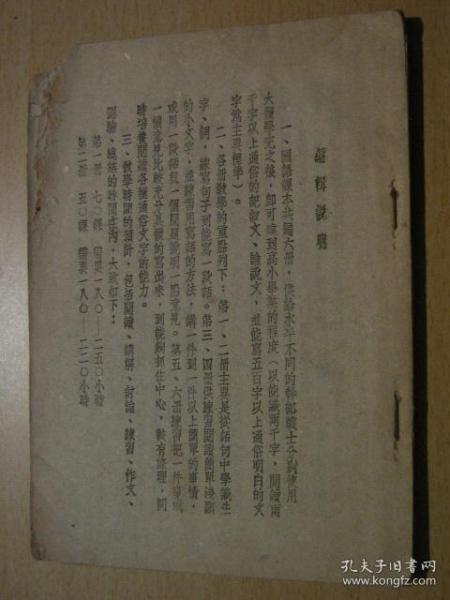 編輯說明
一、國語課本共編六冊，供給水平不同的幹部戰士分別使用
大體學完之後，即可達到高小畢業的程度（以能識兩千字，閱讀兩
千字以上通俗的記敘文、論說文，並能寫五百字以上通俗明白的文
字為主要標準）。
二、各冊教學的重點列下：第一、二冊主要是從話句中學識生
字、詞，練寫句子到能寫一段話。第三、四冊供練習閱讀簡單淺顯
的小文字，並練習用寫話的方法，講一件到一件以上簡單的事情，
或用一段話就一個問題說明一點意見。第五、六冊練習把一件事或
一個意見比較充分具體的寫出來，到能夠抓住中心，較有條理，同
時培養閱讀各種通俗文字的能力。
三、教學時間的預計，包括閱讀、講解、討論、練習、作文、
測驗、總結的時間在內，大致如下：
第一冊 七〇課 需要一八〇——二五〇小時
第二冊 五〇課 需要一八〇——二二〇小時
孔夫子旧书网
www.kongfz.com